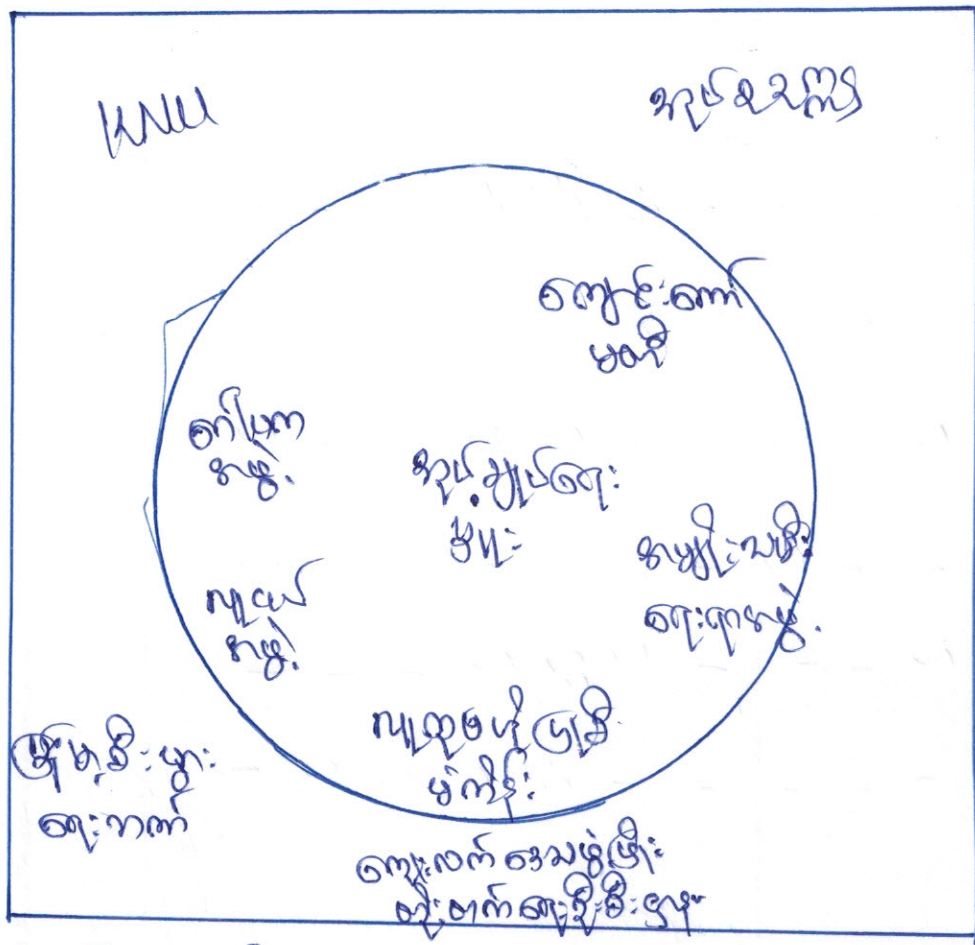 KNU
အုပ်စုသုဏ္ဍ
ကျောင်းကော်
မတီ
စက်ပြုက
အဖွဲ့
အုပ်ချုပ်ရေး
မှူး
အမျိုးသမီး
ရေးရာအဖွဲ့
လူငယ်
အဖွဲ့
လူထုဗဟိုပြုစီ
မံကိန်း
မြို့မှစီးပွား
ရေးဘဏ်
ကျေးလက်ဒေသဖွံ့ဖြိုး
တိုးတက်ရေးဦးစီးဌာန